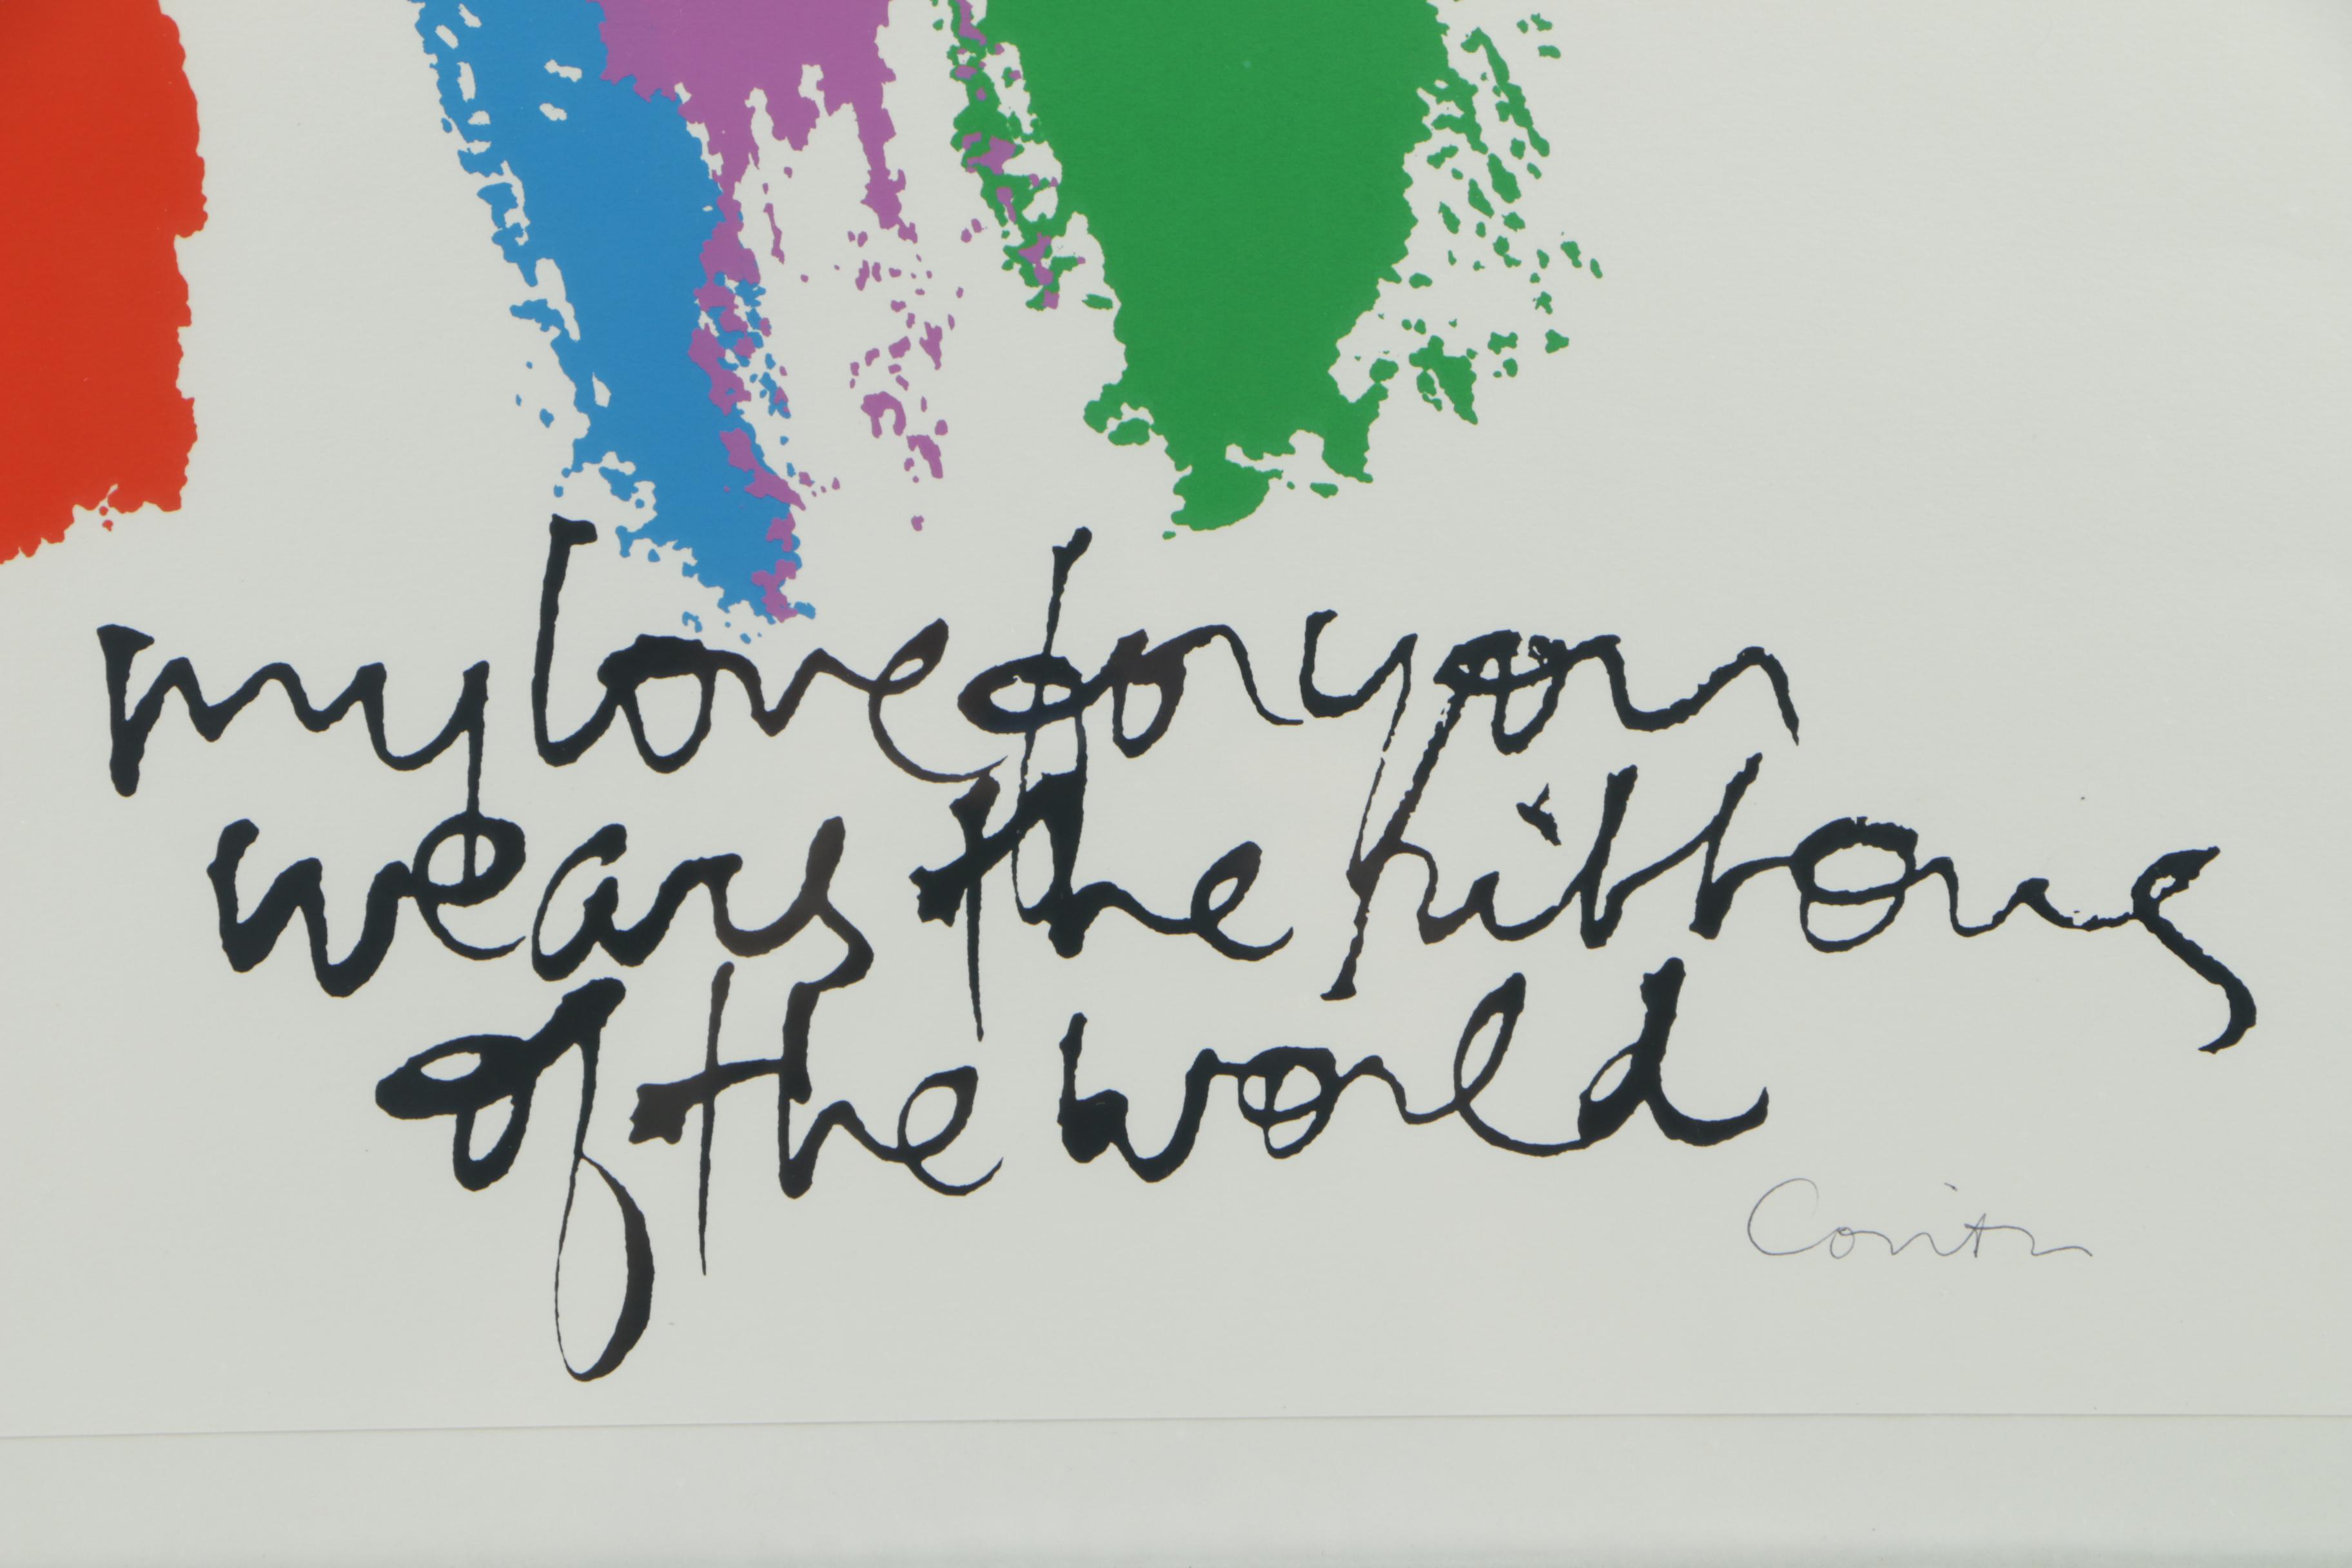 my love for you
wears the ribbons
of the world
Corita